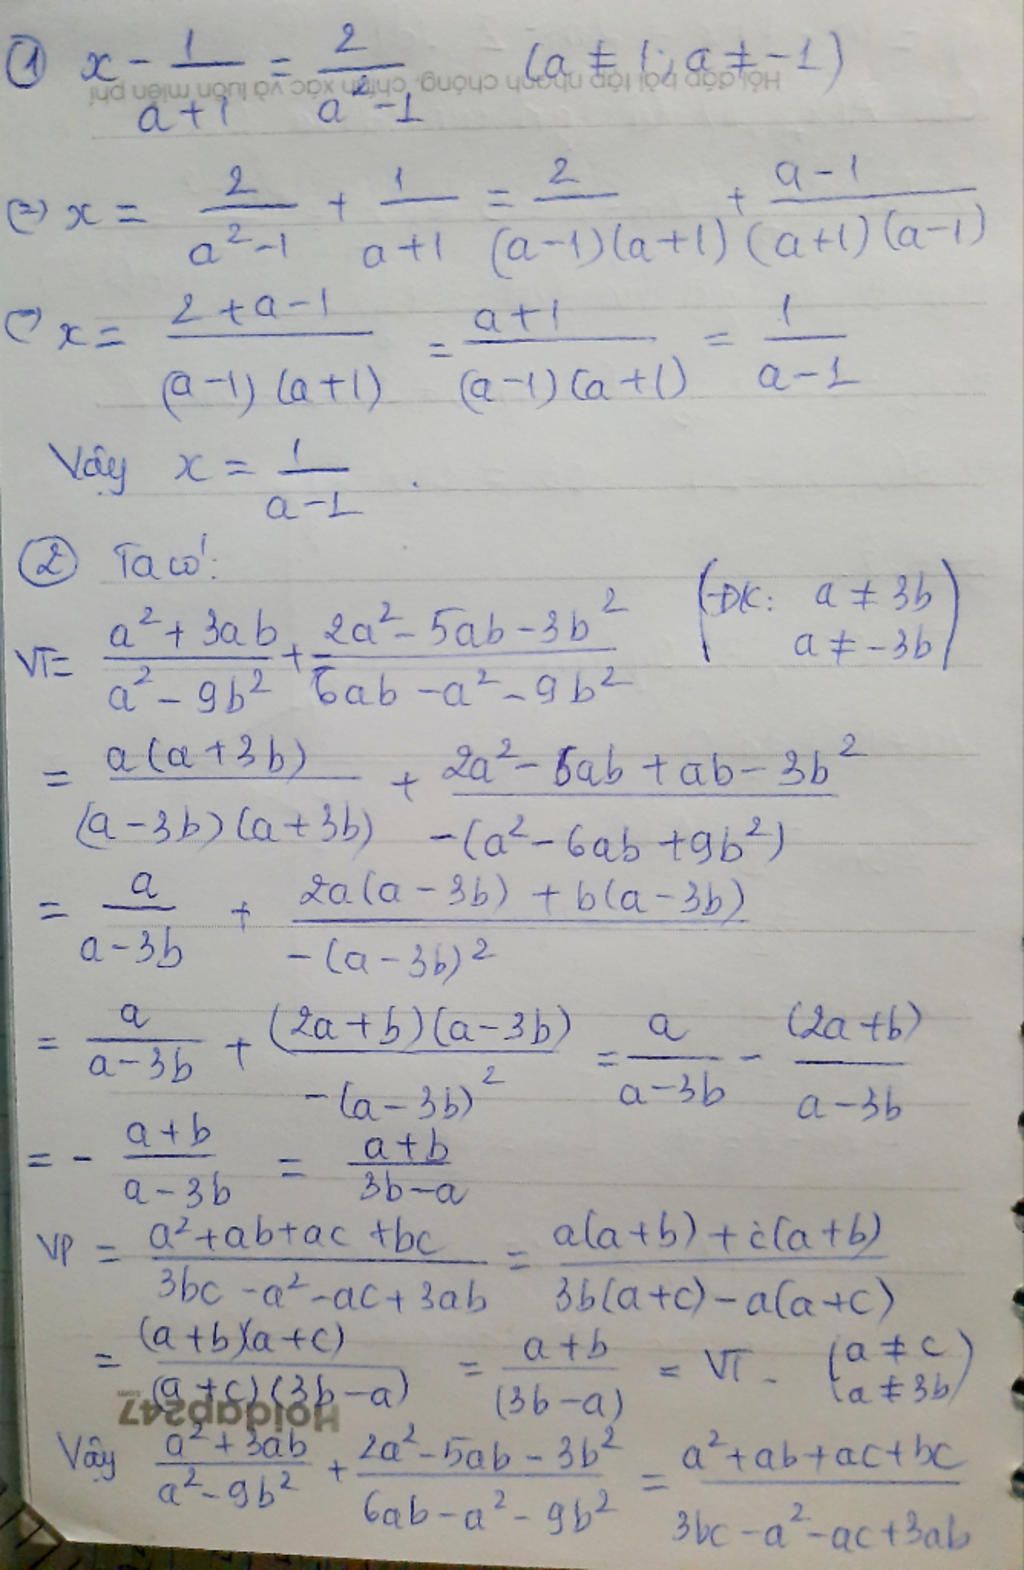 ① x - 1/(a+1) = 2/(a²-1) (a ≠ 1; a ≠ -1)
Hỏi đáp bài tập nhanh chóng, chính xác và luôn miễn phí
(=) x = 2/(a²-1) + 1/(a+1) = 2/((a-1)(a+1)) + (a-1)/((a+1)(a-1))
(=) x = (2+a-1)/((a-1)(a+1)) = (a+1)/((a-1)(a+1)) = 1/(a-1)
Vậy x = 1/(a-1).
② Ta có:
VT = (a²+3ab)/(a²-9b²) + (2a²-5ab-3b²)/(6ab-a²-9b²) (ĐK: a ≠ 3b a ≠ -3b)
= a(a+3b)/((a-3b)(a+3b)) + (2a²-6ab+ab-3b²)/(-(a²-6ab+9b²))
= a/(a-3b) + (2a(a-3b)+b(a-3b))/(-(a-3b)²)
= a/(a-3b) + ((2a+b)(a-3b))/(-(a-3b)²) = a/(a-3b) - (2a+b)/(a-3b)
= - (a+b)/(a-3b) = (a+b)/(3b-a)
VP = (a²+ab+ac+bc)/(3bc-a²-ac+3ab) = (a(a+b)+c(a+b))/(3b(a+c)-a(a+c))
= ((a+b)(a+c))/((a+c)(3b-a)) = (a+b)/(3b-a) = VT. (a ≠ c a ≠ 3b)
Hoidap247.com
Vậy (a²+3ab)/(a²-9b²) + (2a²-5ab-3b²)/(6ab-a²-9b²) = (a²+ab+ac+bc)/(3bc-a²-ac+3ab)